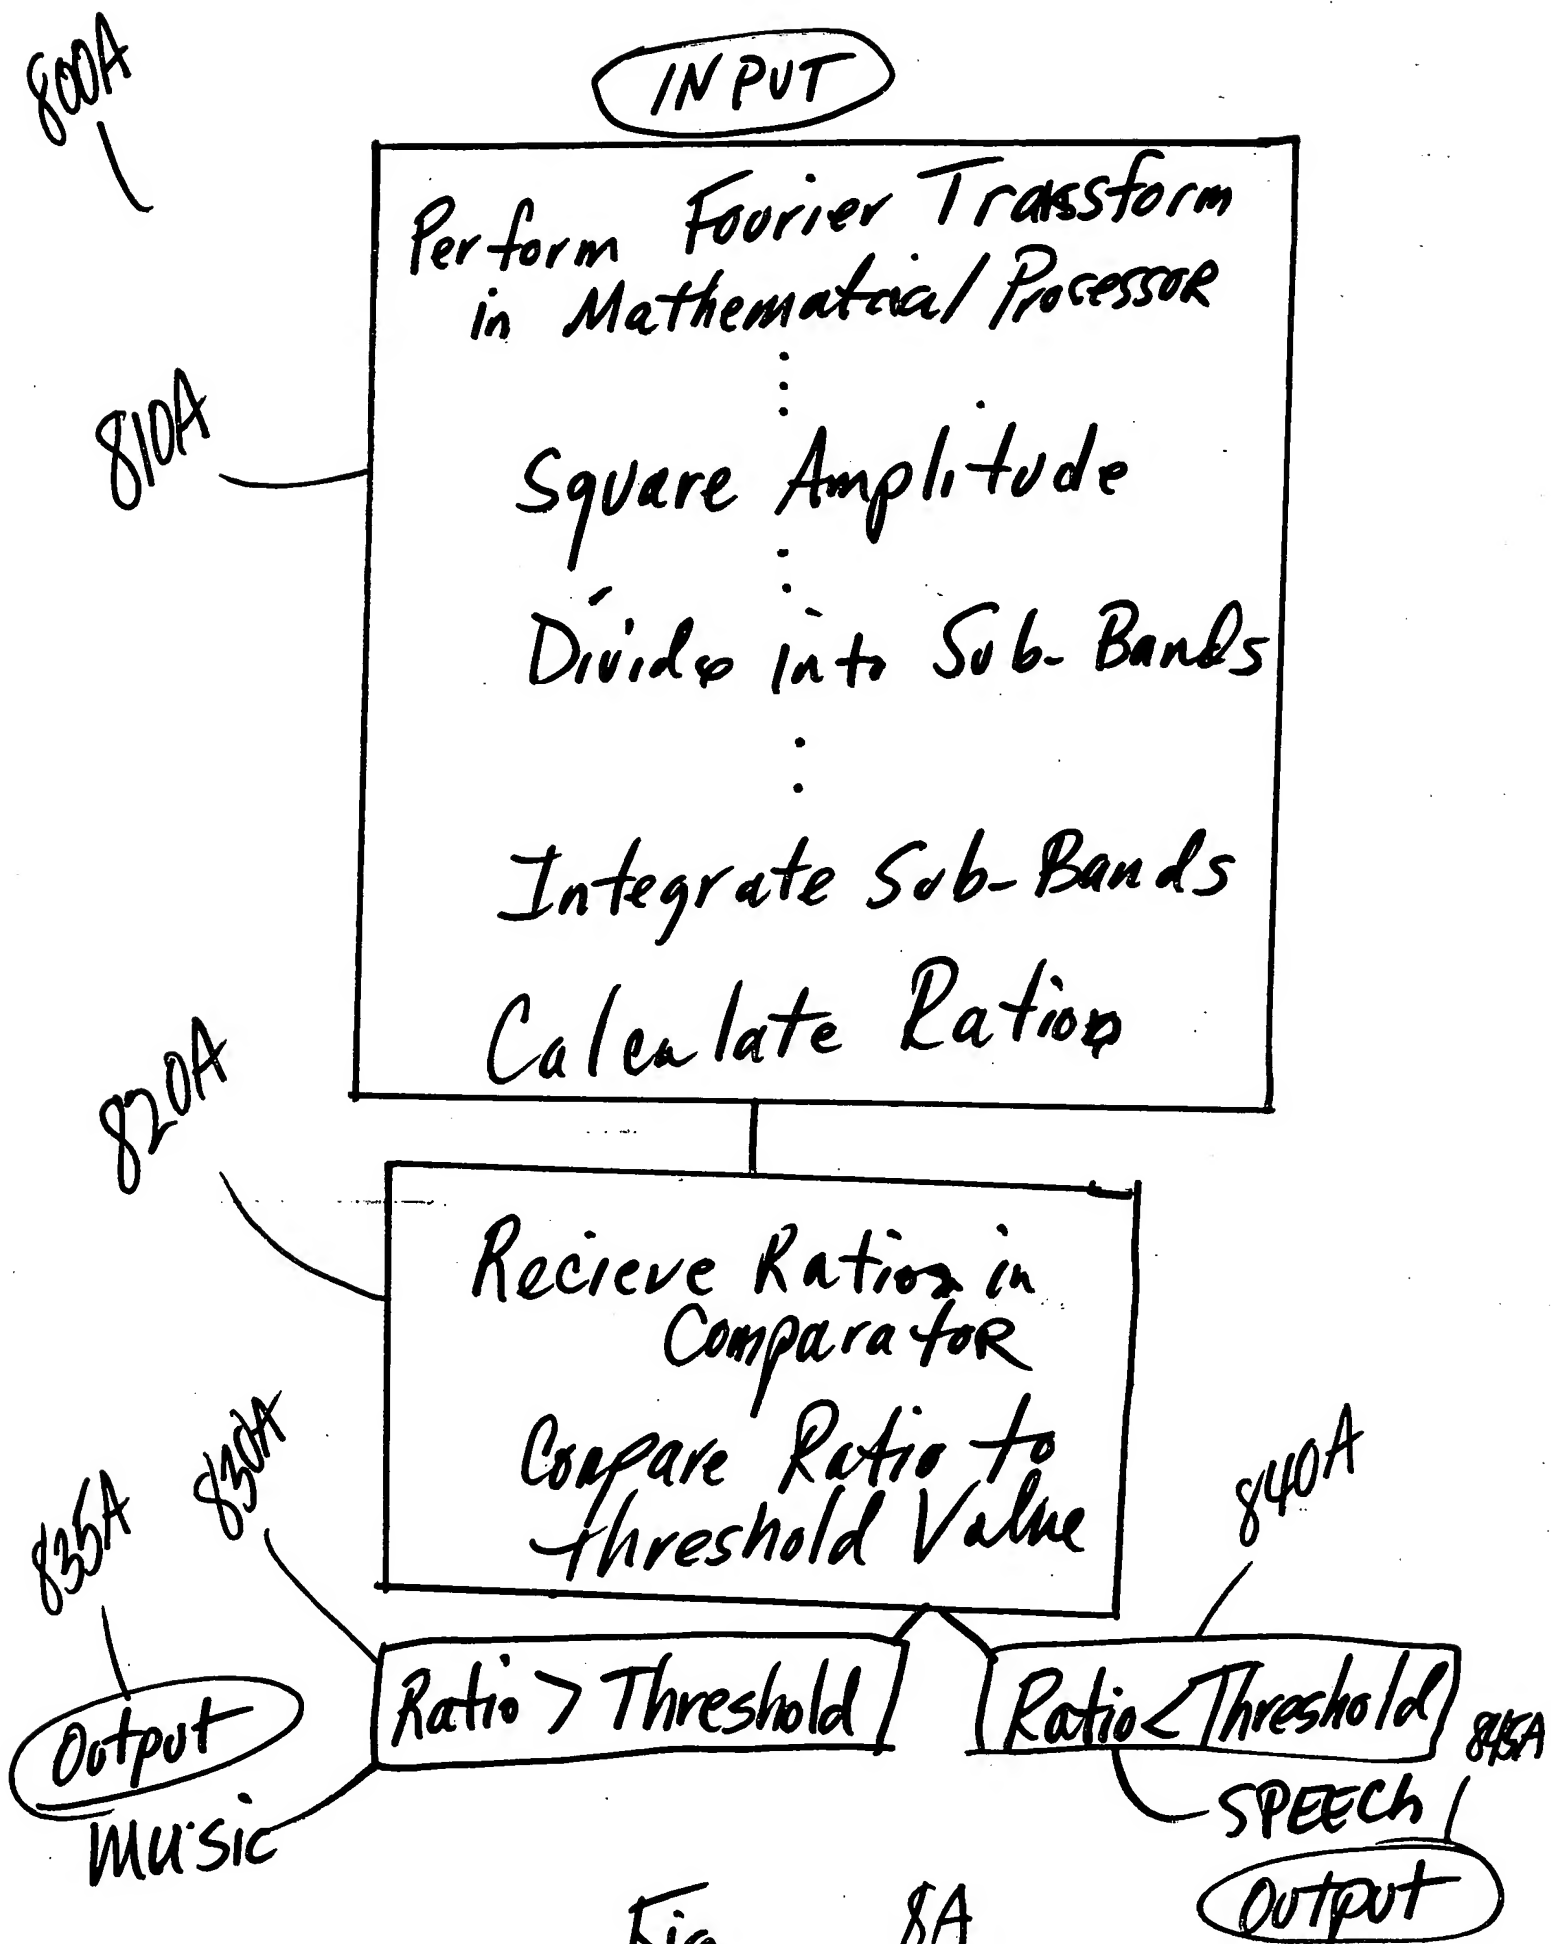 800A
INPUT
Perform Fourier Transform
in Mathematcial Processor
810A
Square Amplitude
Divide into Sub-Bands
Integrate Sub-Bands
Calculate Ratio
820A
Recieve Ratio in
Comparator
Compare Ratio to
threshold Value
830A
835A
840A
Ratio > Threshold
Ratio < Threshold
845A
Output
Music
SPEECh
Output
Fig 8A